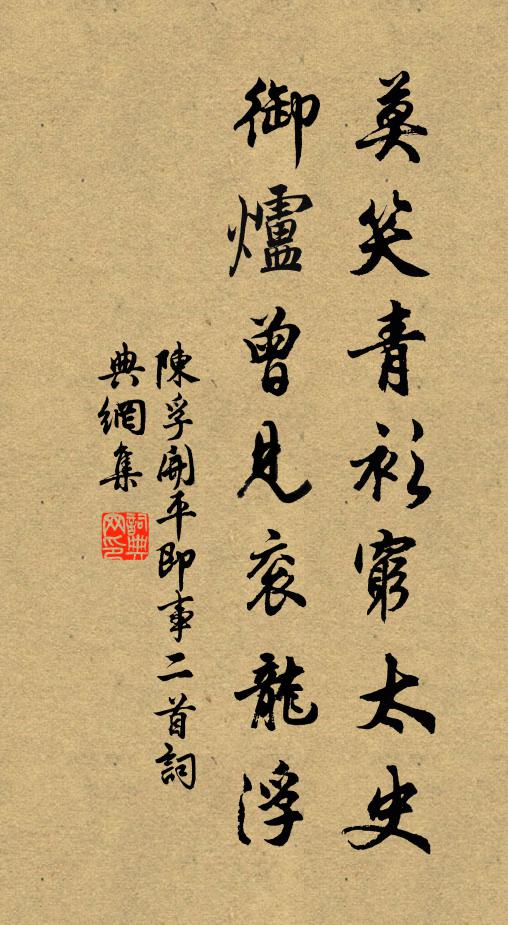 莫笑青衫窮太史
御爐曾見袞龍浮
陳孚開平即事二首詞
典網集
詞典網印